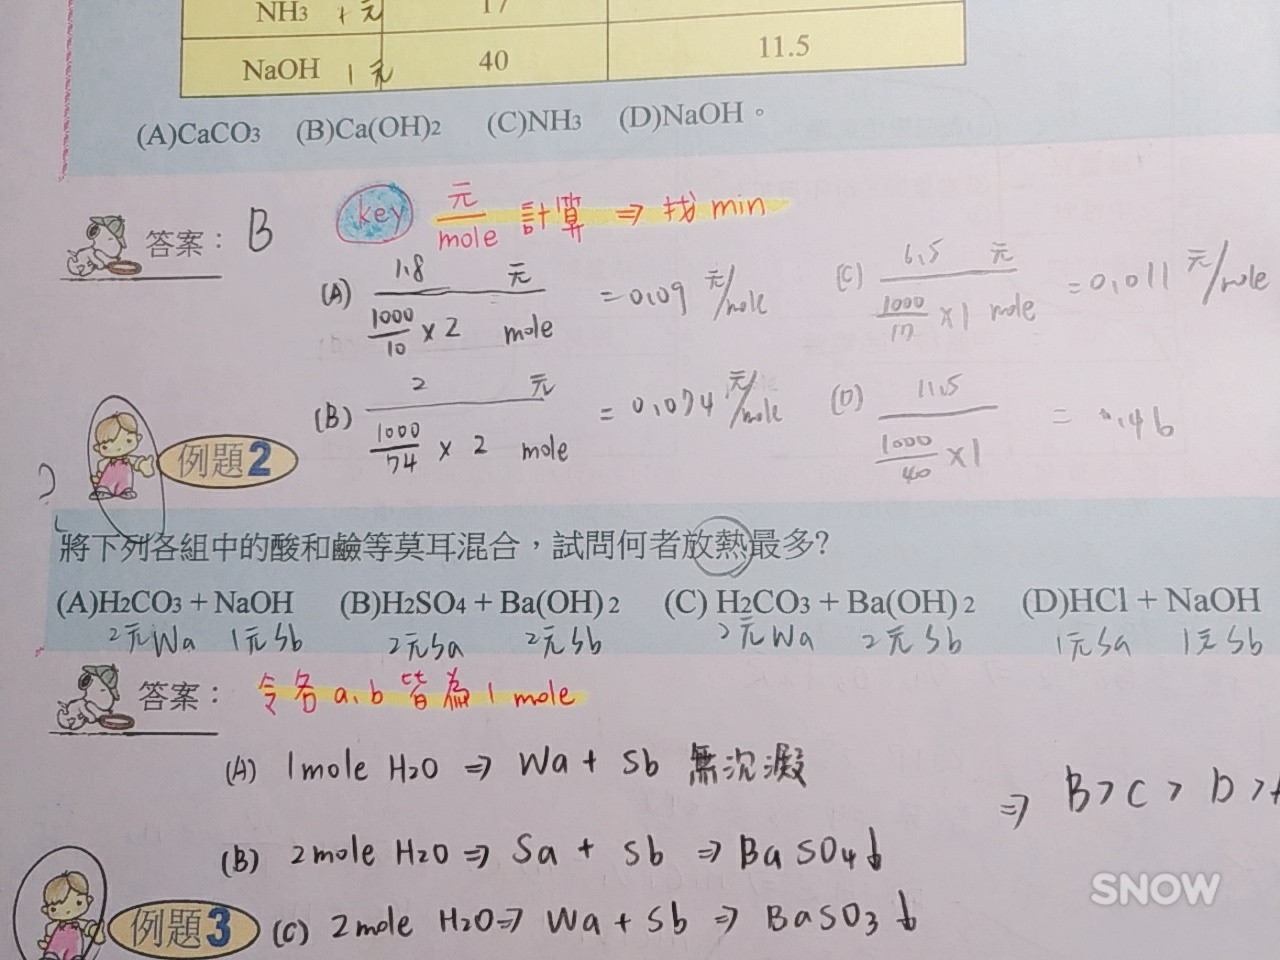 NH3 1元 17
NaOH 1元 40 11.5
(A)CaCO3 (B)Ca(OH)2 (C)NH3 (D)NaOH。
答案： B key 元/mole 計算 ⇒ 找 min
(A) 1.8 元 / (1000/10 × 2 mole) = 0.09 元/mole (C) 6.5 元 / (1000/17 × 1 mole) = 0.011 元/mole
(B) 2 元 / (1000/74 × 2 mole) = 0.074 元/mole (D) 11.5 / (1000/40 × 1) = .46
例題2
將下列各組中的酸和鹼等莫耳混合，試問何者放熱最多?
(A)H2CO3 + NaOH (B)H2SO4 + Ba(OH)2 (C) H2CO3 + Ba(OH)2 (D)HCl + NaOH
2元Wa 1元Sb 2元Sa 2元Sb 2元Wa 2元Sb 1元Sa 1元Sb
答案： 令各a.b皆為1 mole
(A) 1mole H2O ⇒ Wa + Sb 無沉澱
⇒ B > C > D >
(B) 2mole H2O ⇒ Sa + Sb ⇒ BaSO4↓
例題3 (C) 2mole H2O ⇒ Wa + Sb ⇒ BaSO3↓
SNOW